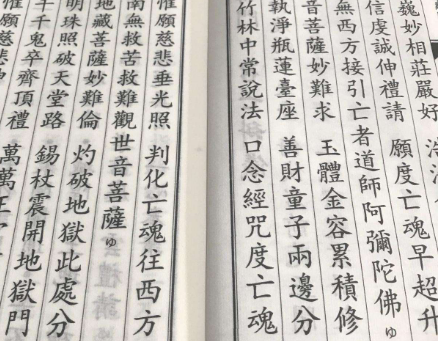 巍妙相莊嚴好
信虔誠伸禮請 願度亡魂早超升
無西方接引亡者道師阿彌陀佛
音菩薩妙難求 玉體金容累積修
執淨瓶蓮臺座 善財童子兩邊分
竹林中常說法 口念經咒度亡魂
惟願慈悲垂光照 判化亡魂往西方
南無救苦救難觀世音菩薩
地藏菩薩妙難倫 灼破地獄此處分
明珠照破天堂路 錫杖震開地獄門
千千鬼卒齊頂禮 萬萬王
惟願慈悲